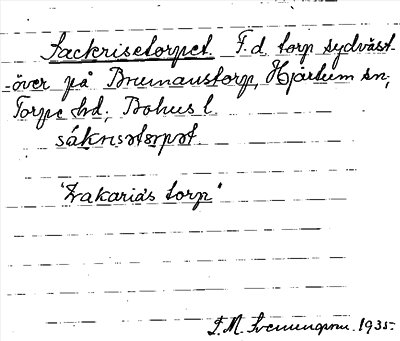 Sackrisetorpet. F.d. torp sydväst-
över på Brumanstorp, Hjärtum sn,
Torpe hd; Bohus l.
säkrisətɔrpət.
"Zakariäs torp"
S. M. Svenungson. 1935.